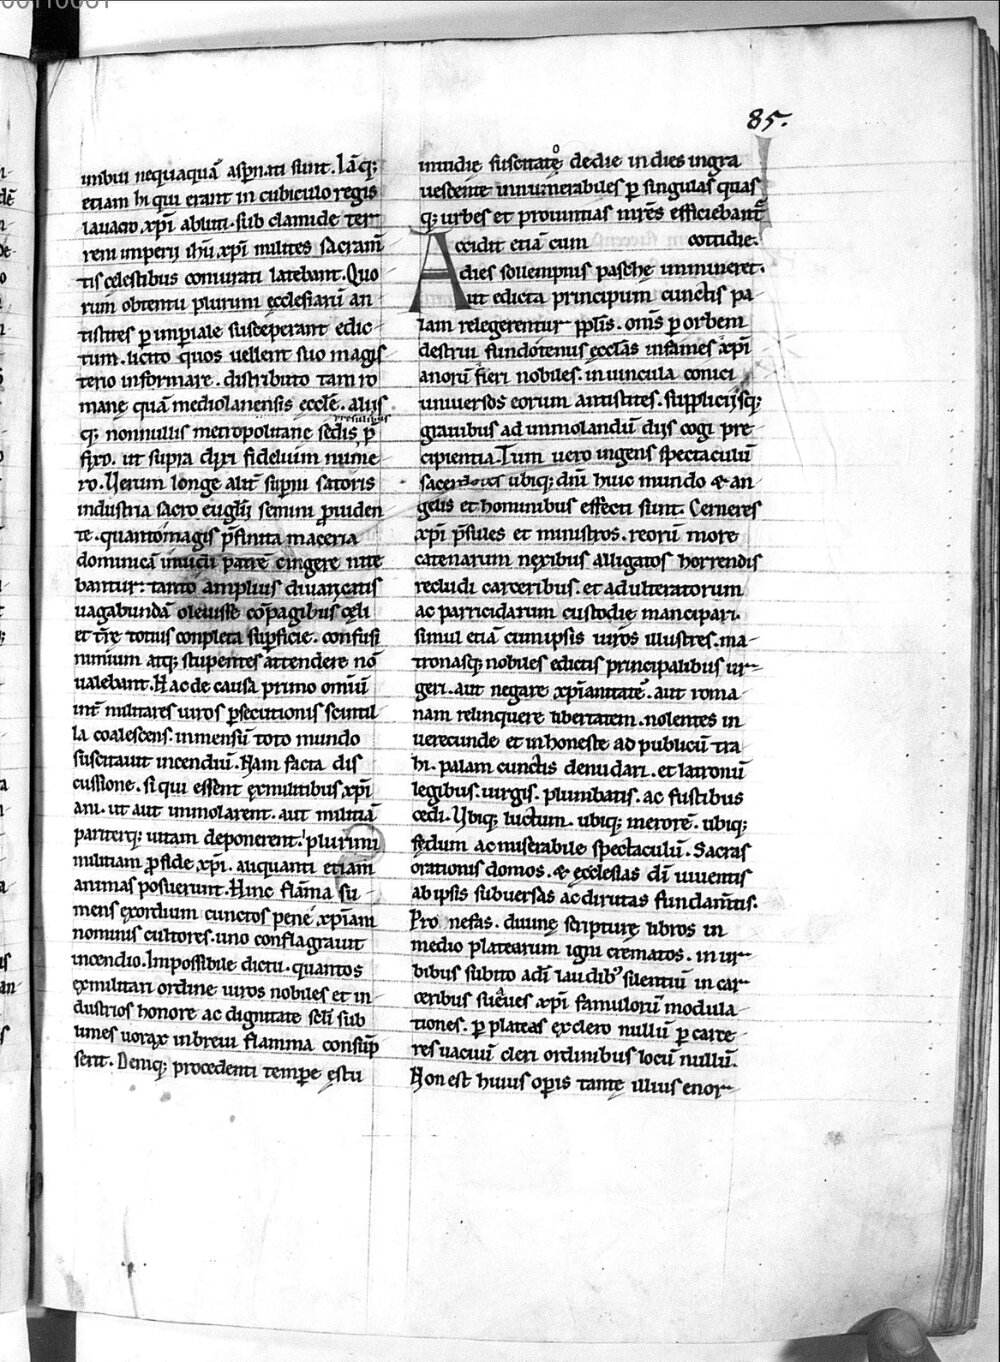 85.
imbui nequaquā aspnati sunt. Iāq;
etiam hi qui erant in cubiculo regis
lauacro xp̄i abluti. sub clamide ter
reni imperii ihū xp̄i milites sacram̄
tis celestibus coniurati latebant. Quo
rum obtentu plurimi ecclesiarū an
tistites p imperiale susceperant edic
tum. licito quos uellent suo magis
terio informare. distributo tam ro
mane quā mediolanensis eccle. aliis
q; nonnullis metropolitane sedis p̄
fixo. ut supra dixi fidelium nume
ro. Verum longe alit̄ superni satoris
industria sacro euglii semini prouiden
te. quantomagis p̄finita maceria
domunicā inuidi patrē cingere nite
bantur. tanto amplius diuaricatis
uagabundā oleuisse cōpagibus cęli
et tr̄e totius conpleta supficie. confusi
nimium atq; stupentes attendere nō
ualebant. Hac de causa primo omiū
int̄ militares uiros psecutionis scintil
la coalescens. inmensū toto mundo
suscitauit incendiū. Nam facta dis
cussione. si qui essent ex militibus xp̄i
ani. ut aut immolarent. aut militiā
pariterq; uitam deponerent. plurimi
militiam p fide xp̄i. aliquanti etiam
animas posuerunt. Hinc flāma su
mens exordium cunctos pene xp̄iani
nominis cultores. uno conflagrauit
incendio. Impossibile dictu. quantos
ex militari ordine uiros nobiles et in
dustrios honore ac dignitate sclī sub
limes uorax in breui flamma consūp
serit. Deniq; procedenti tempe ęstu
inuidię suscitatę. de die in dies ingra
uescente innumerabiles p singulas quas
q; urbes et prouintias mr̄es efficiebant̄
Accidit etiā cum cottidie.
dies sollempnis paschę immineret.
ut edicta principum cunctis pa
lam relegerentur pplīs. om̄s p orbem
destrui funditenus ecclās infames xp̄i
anorū fieri nobiles. in uincula conici
uniuersos eorum antistites. suppliciisq;
grauibus ad immolandū diis cogi pre
cipientia. Tum uero ingens spectaculū
sacerdotes ubiq; dn̄i huic mundo & an
gelis et hominibus effecti sunt. Cerneres
xp̄i p̄sules et ministros. reorū more
catenarum nexibus alligatos horrendis
recludi carceribus. et adulteratorum
ac parricidarum custodię mancipari.
simul etiā cum ipsis uiros illustres. ma
tronasq; nobiles edictis principalibus ur
geri. aut negare xp̄ianitatē. aut roma
nam relinquere libertatem. nolentes in
uerecunde et inhoneste ad publicū tra
hi. palam cunctis denudari. et latronū
legibus. uirgis. plumbatis. ac fustibus
cedi. Vbiq; luctum. ubiq; merorē. ubiq;
fedum ac miserabile spectaculū. Sacras
orationis domos. & ecclesias dī uiuentis
ab ipsis subuersas ac dirutas fundam̄tis.
Pro nefas. diuinę scripturę libros in
medio platearum igni crematos. in ur
bibus subito a dī laudib; silentiū in car
ceribus suaues xp̄i famulorū modula
tiones. p plateas ex clero nullū p carce
res uacuū cleri ordinibus locū nullū.
Non est huius opis tantę illius enor